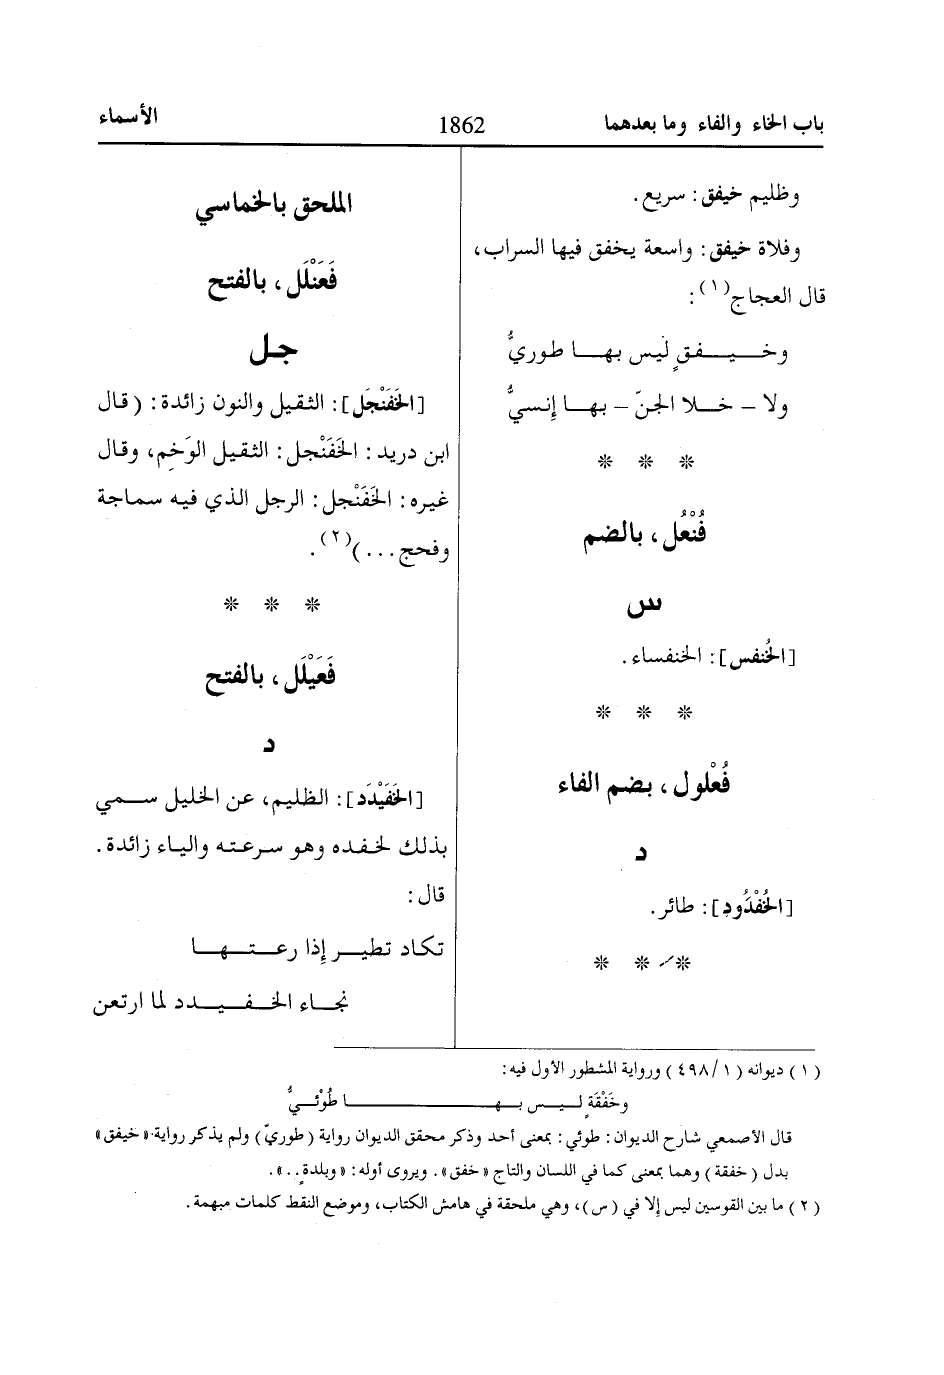 باب الخاء والفاء وما بعدهما
1862
الأسماء
وظليم خيفق: سريع.
وفلاة خيفق: واسعة يخفق فيها السراب،
قال العجاج(١):
وخـــيـــفـقٍ ليس بهـــا طوريُّ
ولا – خـــلا الجنّ – بهــا إنسيُّ
* * *
فُنْعُل، بالضم
س
[الخُنفس]: الخنفساء.
* * *
فُعْلول، بضم الفاء
د
[الخُفْدُود]: طائر.
* * *
الملحق بالخماسي
فَعَنْلَل، بالفتح
جل
[الخَفَنْجَل]: الثقيل والنون زائدة: (قال
ابن دريد: الخَفَنْجل: الثقيل الوَخِم، وقال
غيره: الخَفَنْجل: الرجل الذي فيه سماجة
وفحج...)(٢).
* * *
فَعَيْلَل، بالفتح
د
[الخَفَيْدَد]: الظليم، عن الخليل سمي
بذلك لخفده وهو سرعته والياء زائدة.
قال:
تكاد تطيـــر إذا رعـــتـــهـــا
نجـــاء الخـــفـــيـــدد لما ارتعن
(١) ديوانه (١/٤٩٨) ورواية المشطور الأول فيه:
وخَفْقَةٍ لـيـس بـهـــا طُوْئـيُّ
قال الأصمعي شارح الديوان: طوئي: بمعنى أحد وذكر محقق الديوان رواية (طوريّ) ولم يذكر رواية «خيفق»
بدل (خفقة) وهما بمعنى كما في اللسان والتاج «خفق». ويروى أوله: «وبلدةٍ..».
(٢) ما بين القوسين ليس إلا في (س)، وهي ملحقة في هامش الكتاب، وموضع النقط كلمات مبهمة.